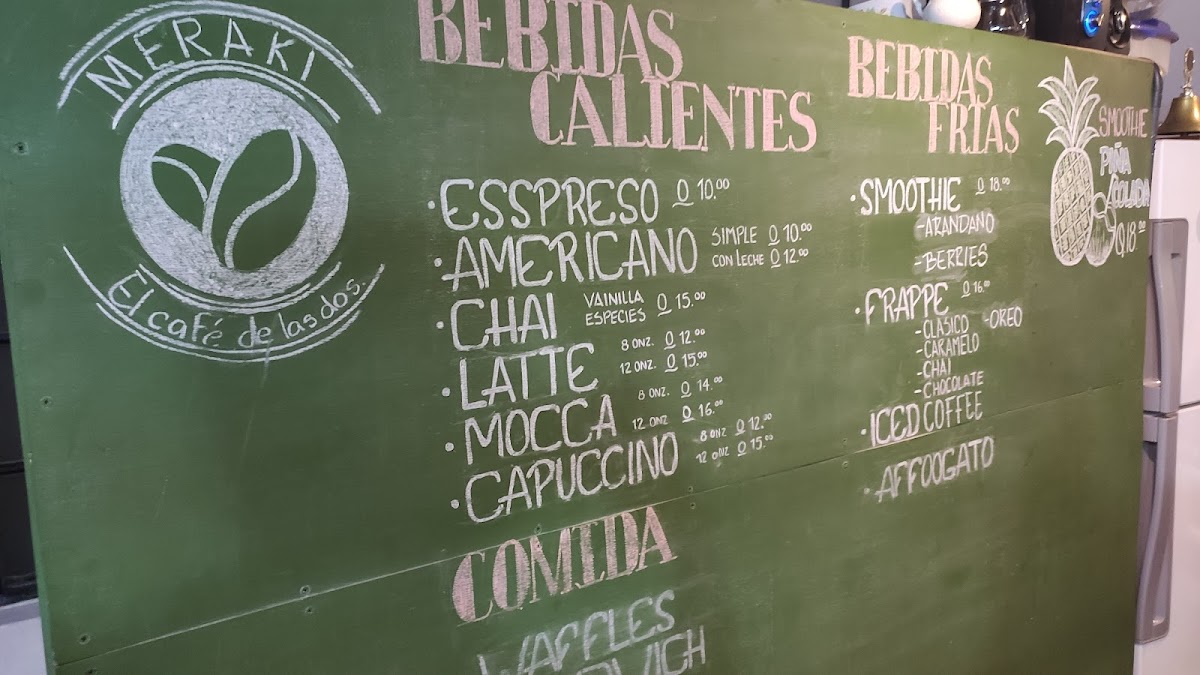 MERAKI
El café de las dos.
BEBIDAS
CALIENTES
• ESSPRESO Q 10.00
• AMERICANO SIMPLE Q 10.00
CON LECHE Q 12.00
• CHAI VAINILLA
ESPECIES Q 15.00
• LATTE 8 ONZ. Q 12.00
12 ONZ. Q 15.00
• MOCCA 8 ONZ. Q 14.00
12 ONZ Q 16.00
• CAPUCCINO 8 ONZ Q 12.00
12 ONZ Q 15.00
COMIDA
WAFFLES
BEBIDAS
FRIAS
• SMOOTHIE Q 18.00
- ARANDANO
- BERRIES
• FRAPPE Q 16.00
- CLASICO - OREO
- CARAMELO
- CHAI
- CHOCOLATE
• ICED COFFEE
• AFFOOGATO
SMOOTHIE
PIÑA
COLADA
Q18.00